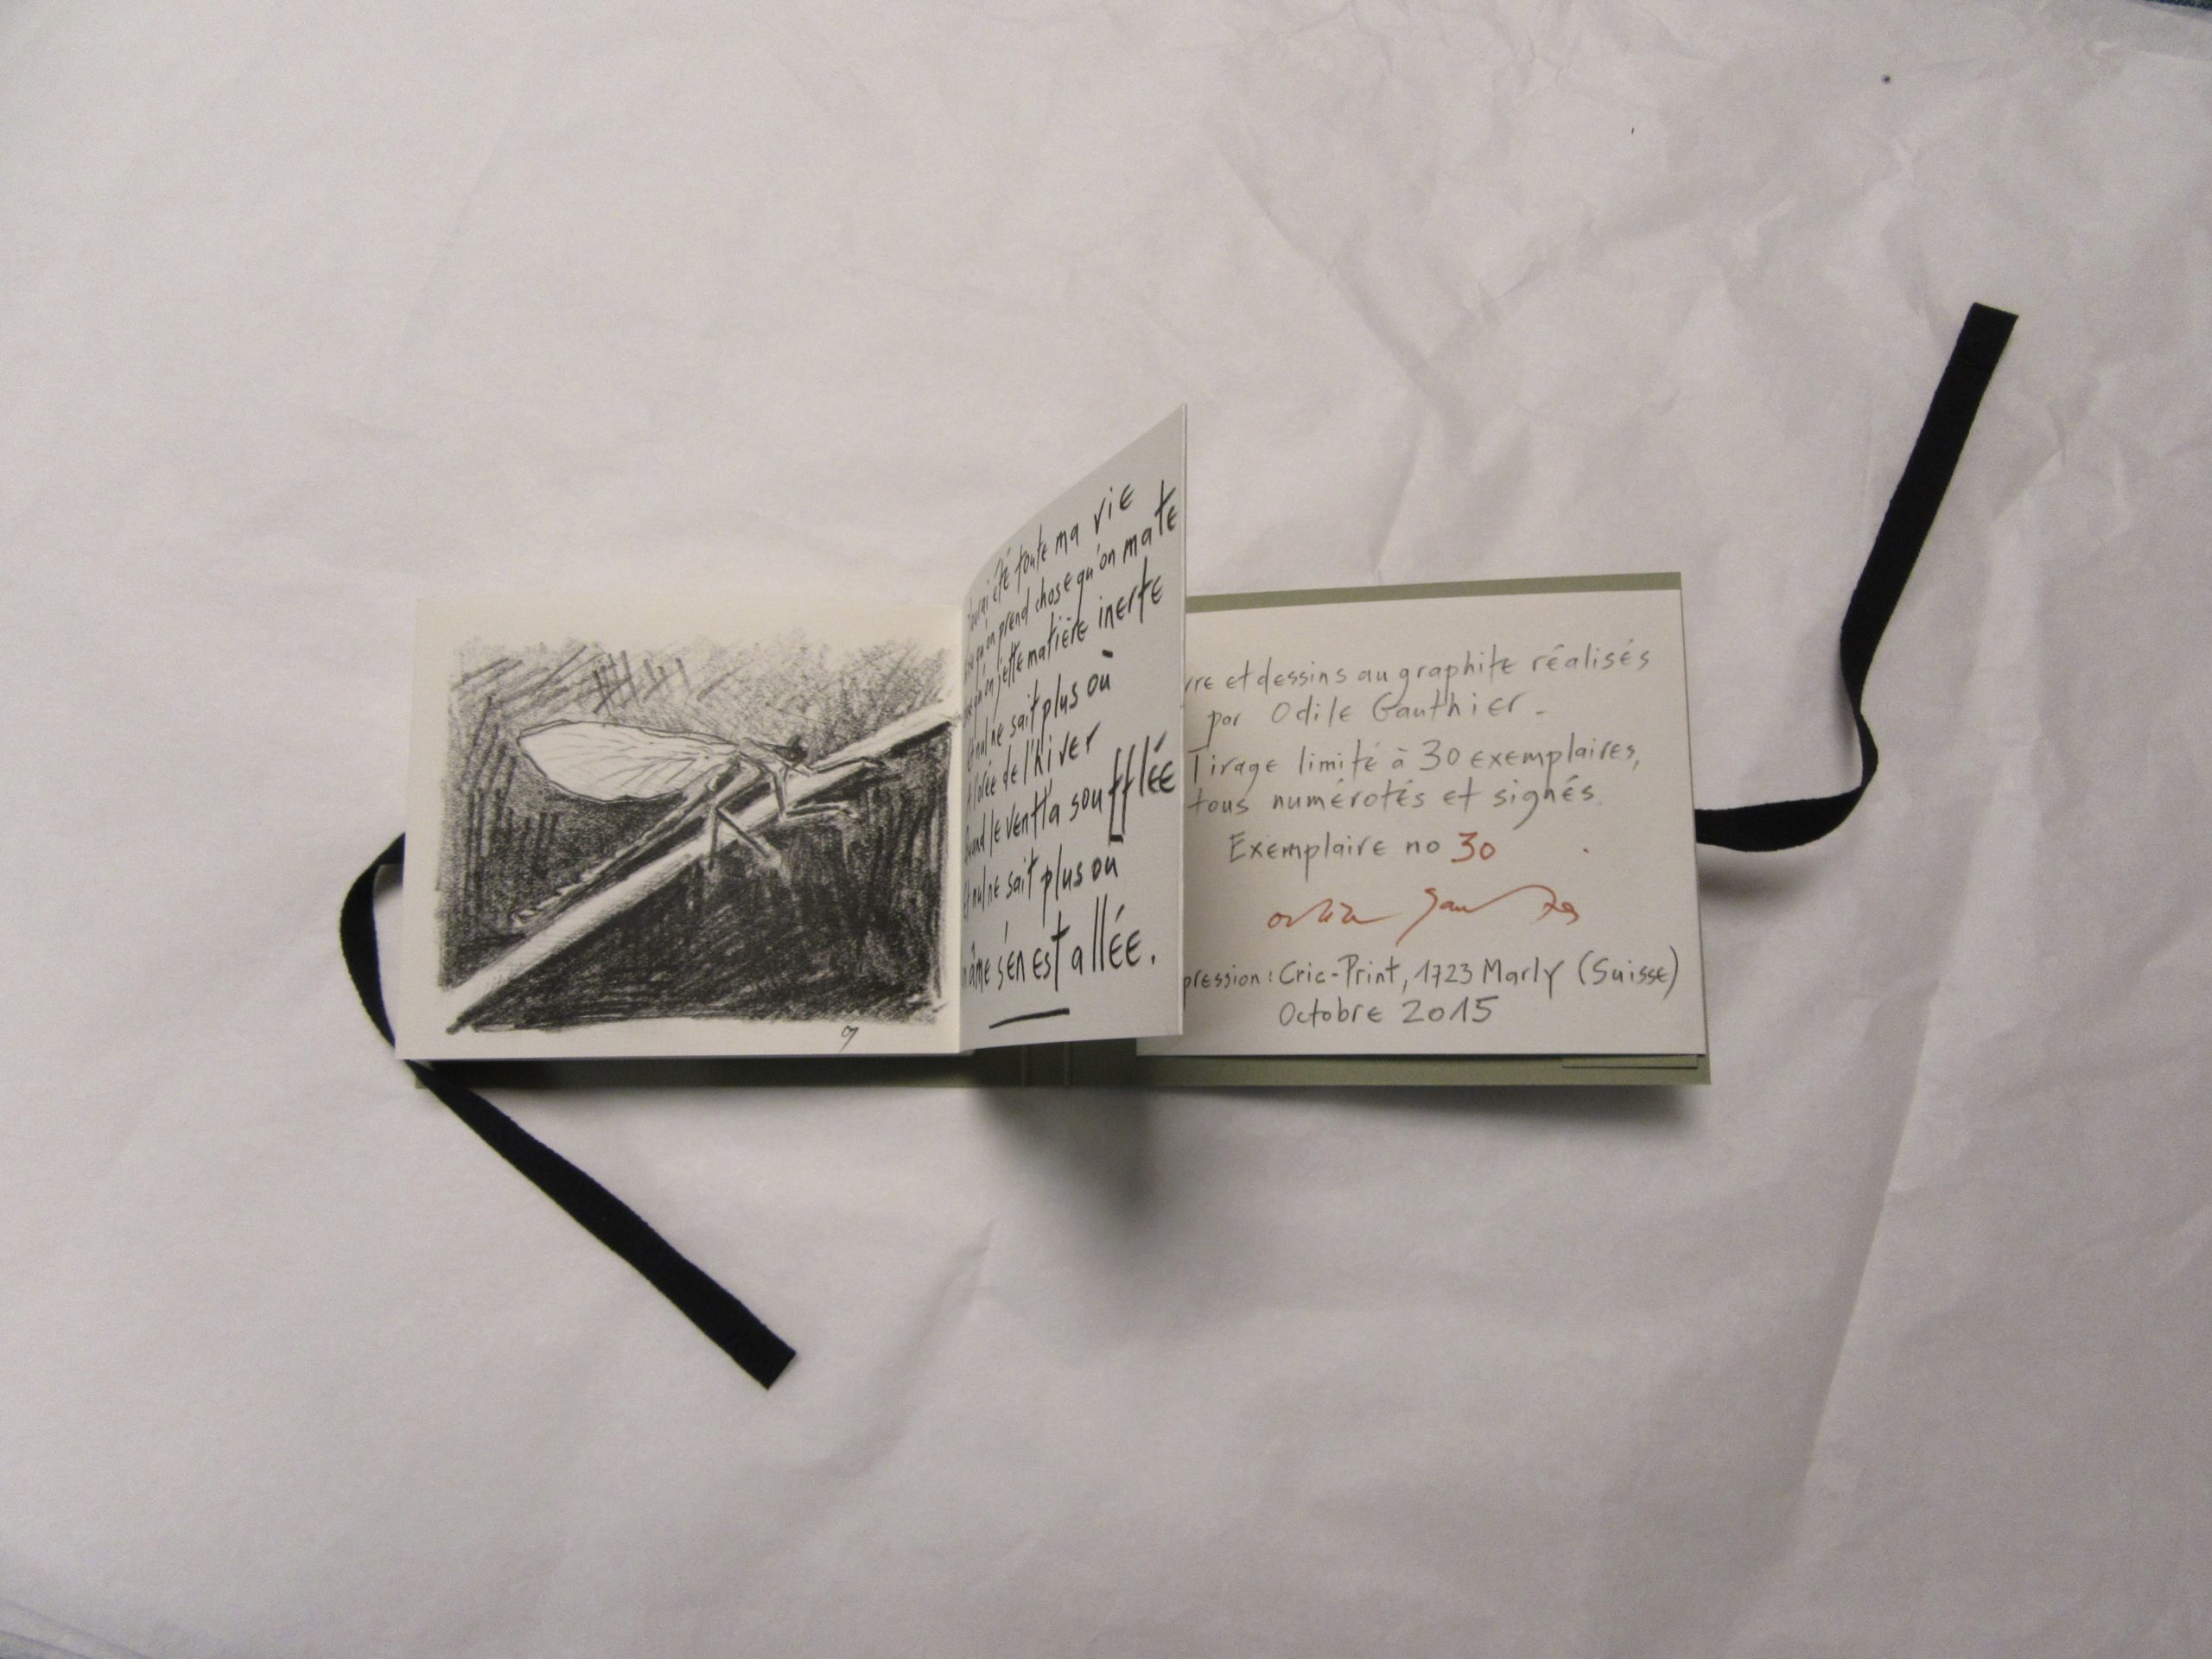 été toute ma vie
qu'on prend chose qu'on mate
qu'on jette matière inerte
Et nul ne sait plus où
A l'orée de l'hiver
Quand le vent l'a soufflée
Et nul ne sait plus où
âme s'en est allée.
vre et dessins au graphite réalisés
par Odile Gauthier.
Tirage limité à 30 exemplaires,
tous numérotés et signés.
Exemplaire no 30
pression: Cric-Print, 1723 Marly (Suisse)
Octobre 2015